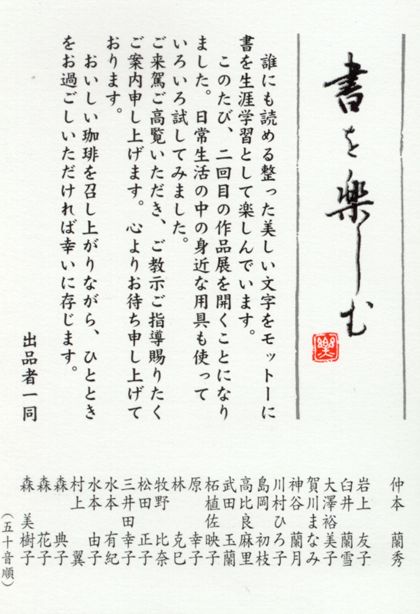 書を楽しむ
樂
誰にも読める整った美しい文字をモットーに
書を生涯学習として楽しんでいます。
このたび、二回目の作品展を開くことになり
ました。日常生活の中の身近な用具も使って
いろいろ試してみました。
ご来駕ご高覧いただき、ご教示ご指導賜りたく
ご案内申し上げます。心よりお待ち申し上げて
おります。
おいしい珈琲を召し上がりながら、ひととき
をお過ごしいただければ幸いに存じます。
出品者一同
仲本 蘭秀
岩上 友子
臼井 蘭雪
大澤裕美子
賀川まなみ
神谷 蘭月
川村ひろ子
島岡 初枝
高比良麻里
武田 玉蘭
柘植佐映子
原 幸子
林 克巳
牧野 比奈
松田 正子
三井田幸子
水本 有紀
水本 由子
村上 翼
森 典子
森 花子
森 美樹子
(五十音順)